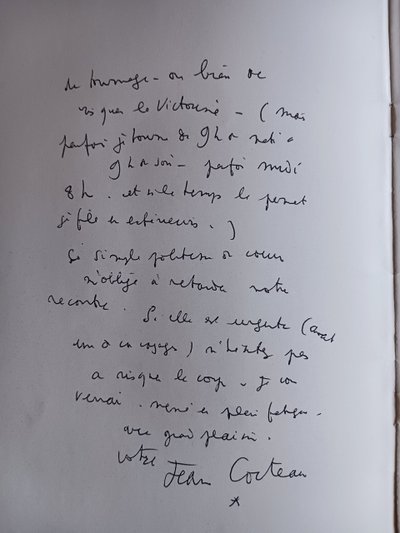 de tournage - ou bien de
risquer la Victorine - (mais
parfois je tourne de 9 h du matin à
9 h du soir - parfois midi
8 h. et si le temps le permet
je file en extérieurs.)
Ce simple politesse de cœur
m'oblige à retarder notre
rencontre. Si elle est urgente (avant
un de vos voyages) n'hésitez pas
à risquer le coup. Je vous
verrai. même en pleine fatigue.
avec grand plaisir.
votre
Jean Cocteau
*